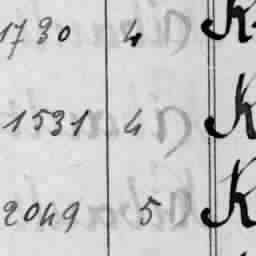 1730 4 K
1531 4 K
2049 5 K